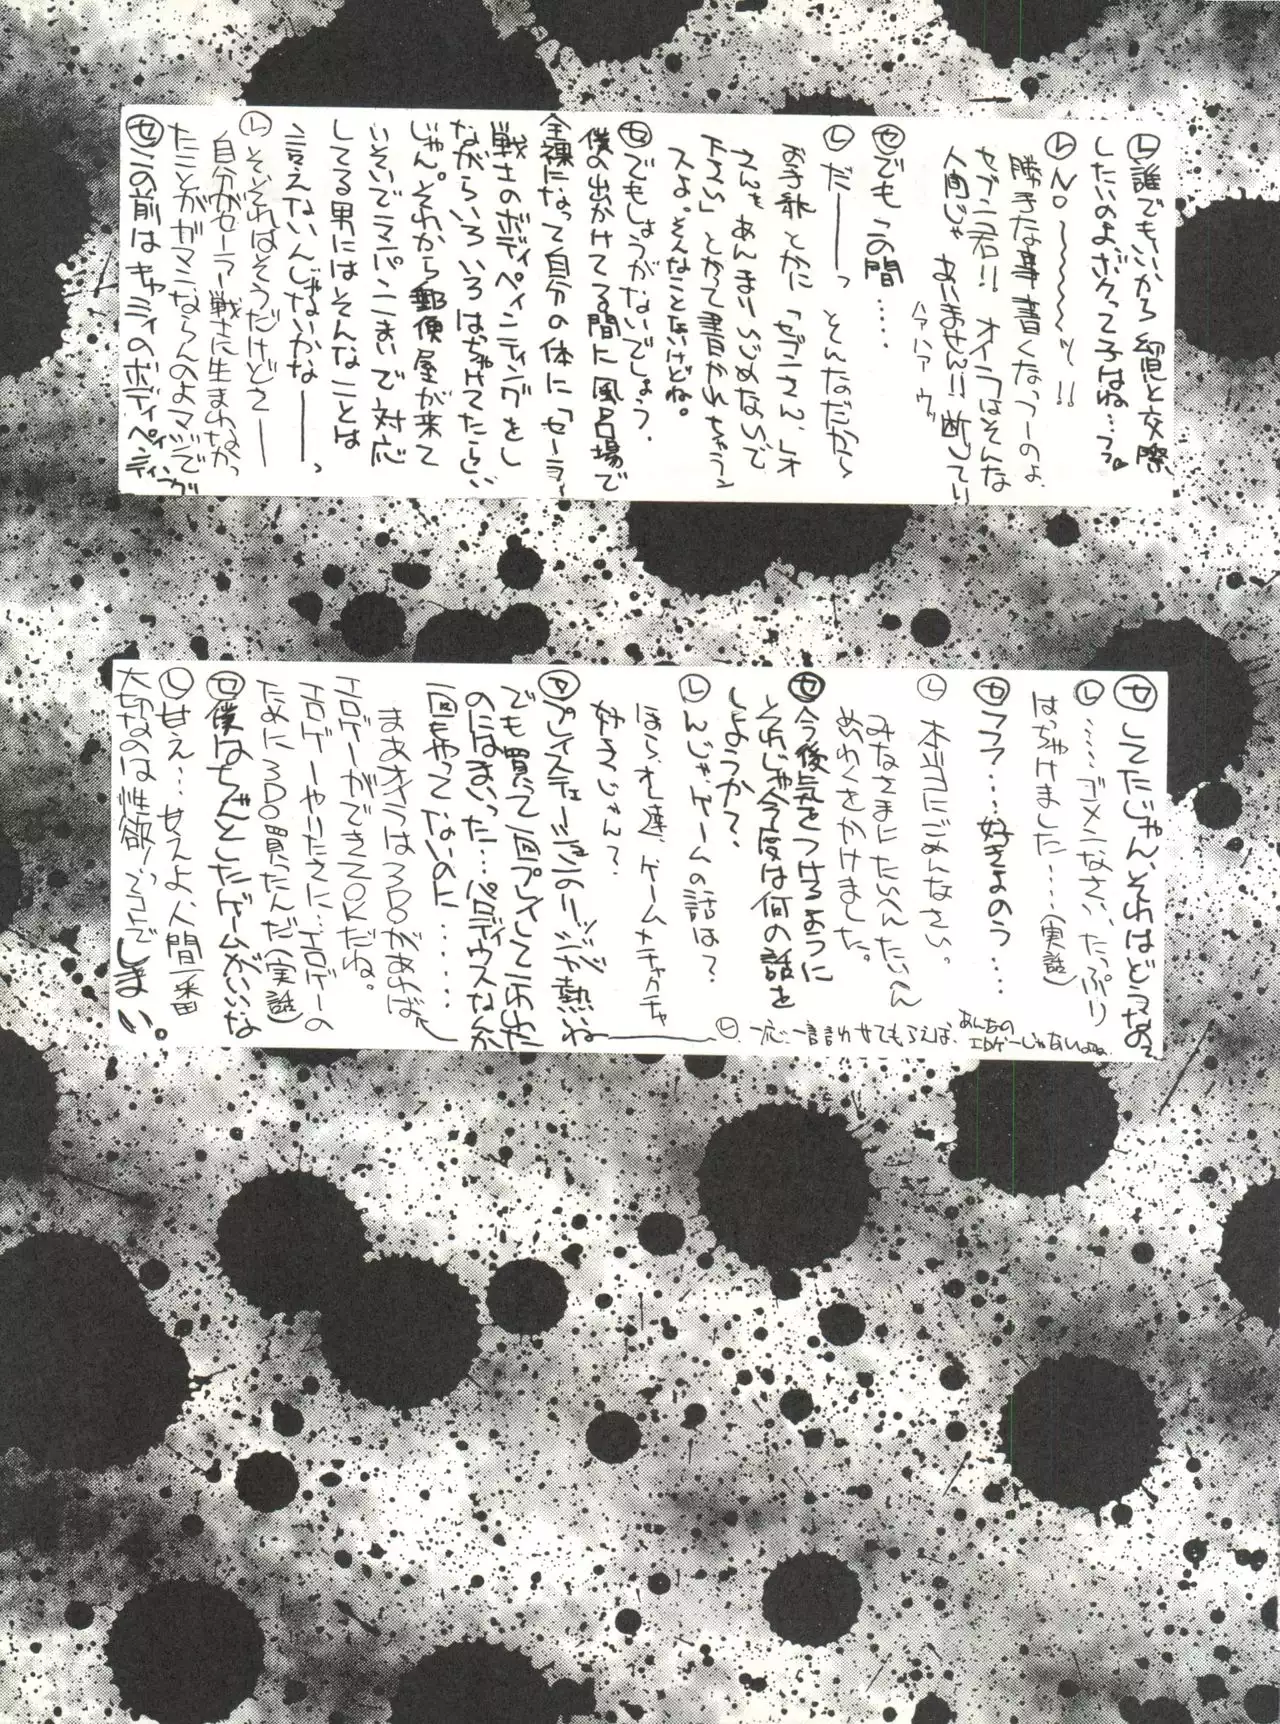 ㋹誰でもいいから と交際
したいのよボクって子はね…フフ♡
㋹ん〜〜〜〜ッ!!
勝手な事書くなっつーのよ
セブン君!! オイラはそんな
人間じゃありません!!断じて!!
ハァハァ ウッ
㋝でもこの間…‥
㋹だーーーっ そんなのだから
お手紙とかに「セブンさん、レオ
さんをあんまりいじめないで
下さい」とかって書かれちゃうン
スよ。そんなことないけどね。
㋝でもしょうがないでしょう。
僕の出かけてる間に風呂場で
全裸になって自分の体に「セーラー
戦士のボディペインティングをし
ながらいろいろはっちゃけてたらしい
じゃん。それから郵便屋が来て
いそいでマンパンこまいで対応
してる男にはそんなことは
言えないんじゃないかなーーーっ
㋹そ、それはそうだけどさーー
自分がセーラー戦士に生まれなかっ
たことがガマンならんのよマジで
㋝この前はキャミィのボディペインティング
㋝してたじゃん、それはどうなの?
㋹……ゴメンなさい、たっぷり
はっちゃけました……(実話)
㋝フフフ…好きよのう…
㋹本当にごめんなさい。
みなさまにたいへんたいへん
めいわくをかけました。
㋝今後気をつけるように
それじゃ今度は何の話を
しようか?
㋹んじゃ、ゲームの話は?
ほら、オレ達、ゲームメチャクチャ
好きじゃん?
㋝プレイステーションのリッジは熱いね
でも買って一回プレイして一位だった
のにはまいった…パロディウスなんか
一回もやってないのに……
まあオイラは3DOがあれば←
エロゲーができてOKだね。
エロゲーやりたさに…エロゲーの
ために3DO買ったんだ(実話)
㋝僕はちゃんとしたゲームがいいな
㋹甘え…甘えよ、人間一番
大切なのは性欲!ってコトで
しまい。
㋹一応一言言わせてもらえば、あんなの
エロゲーじゃないよね